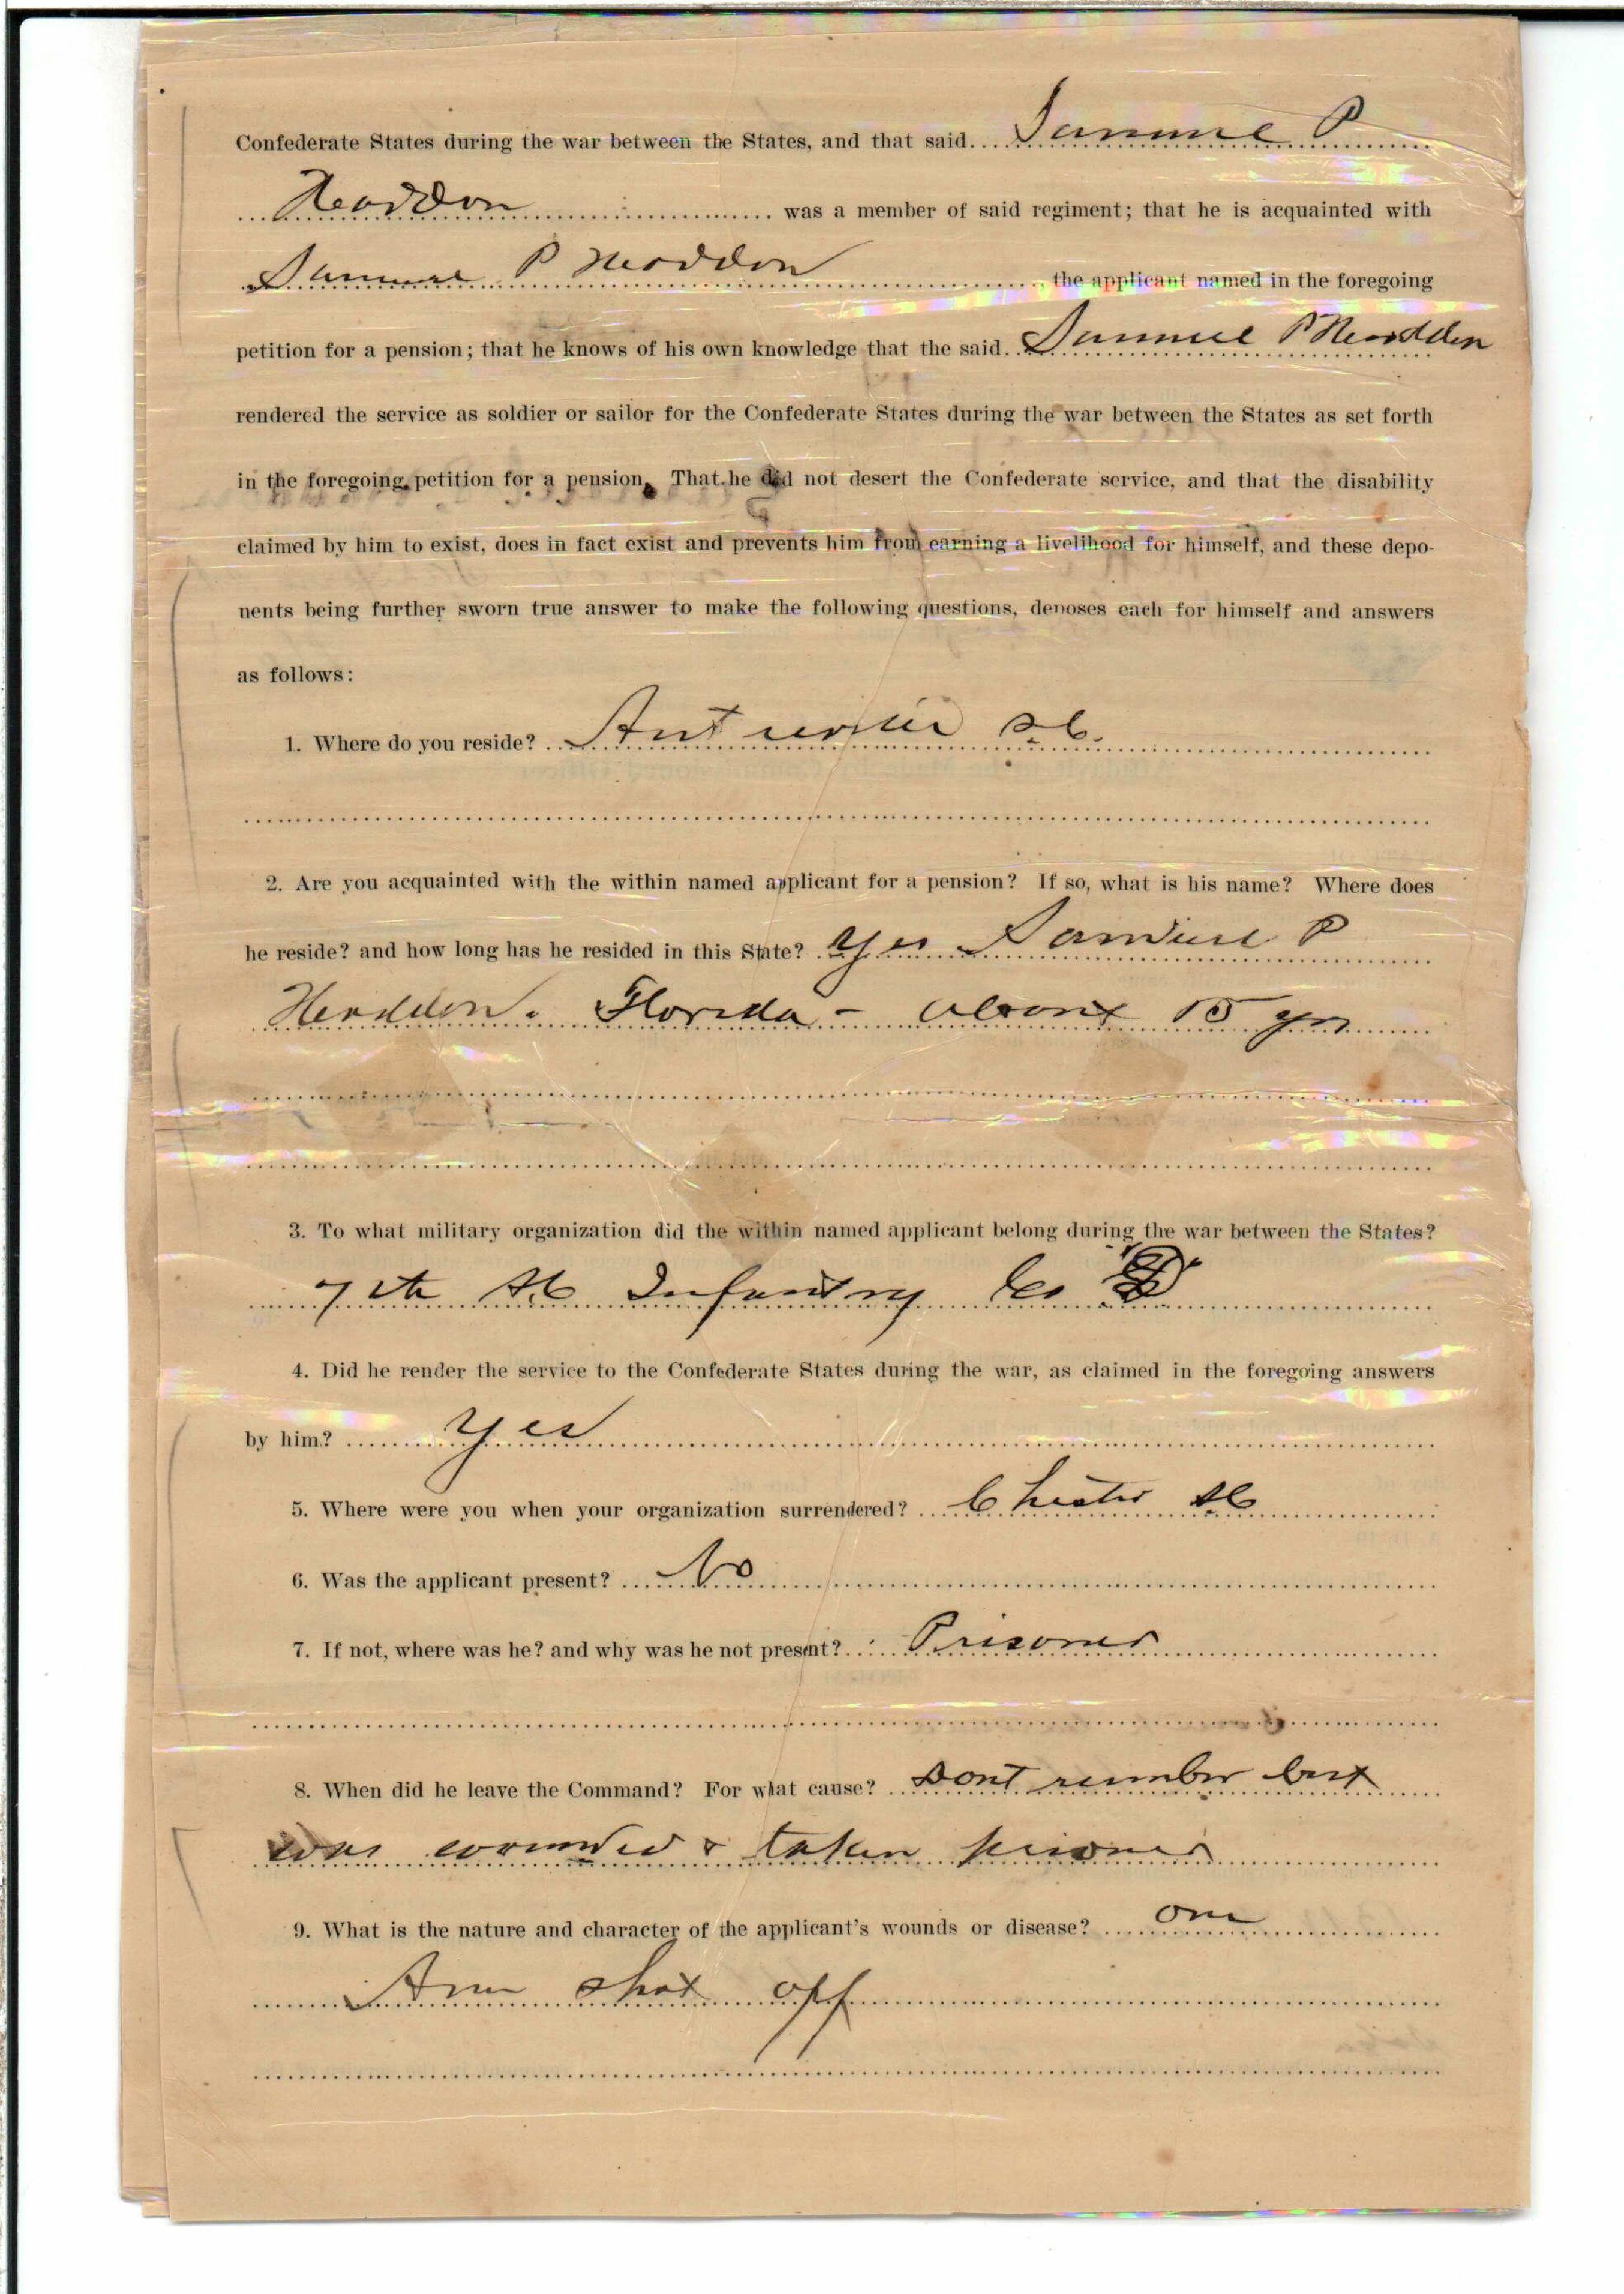 Confederate States during the war between the States, and that said.... Samuel P
Headdon ........ was a member of said regiment; that he is acquainted with
Samuel P Headdon ........ the applicant named in the foregoing
petition for a pension; that he knows of his own knowledge that the said.. Samuel P Headden
rendered the service as soldier or sailor for the Confederate States during the war between the States as set forth
in the foregoing petition for a pension. That he did not desert the Confederate service, and that the disability
claimed by him to exist, does in fact exist and prevents him from earning a livelihood for himself, and these depo-
nents being further sworn true answer to make the following questions, deposes each for himself and answers
as follows:
1. Where do you reside? .. S.C.
2. Are you acquainted with the within named applicant for a pension? If so, what is his name? Where does
he reside? and how long has he resided in this State? . Yes Samuel P
Headden. Florida - about 15 yrs
3. To what military organization did the within named applicant belong during the war between the States?
7th SC Infantry Co D
4. Did he render the service to the Confederate States during the war, as claimed in the foregoing answers
by him? ...... Yes
5. Where were you when your organization surrendered? .... Chester SC
6. Was the applicant present? .... No
7. If not, where was he? and why was he not present? .... Prisoner
8. When did he leave the Command? For what cause? .. Dont remember but
was wounded & taken prisoner
9. What is the nature and character of the applicant's wounds or disease? .... one
Arm shot off